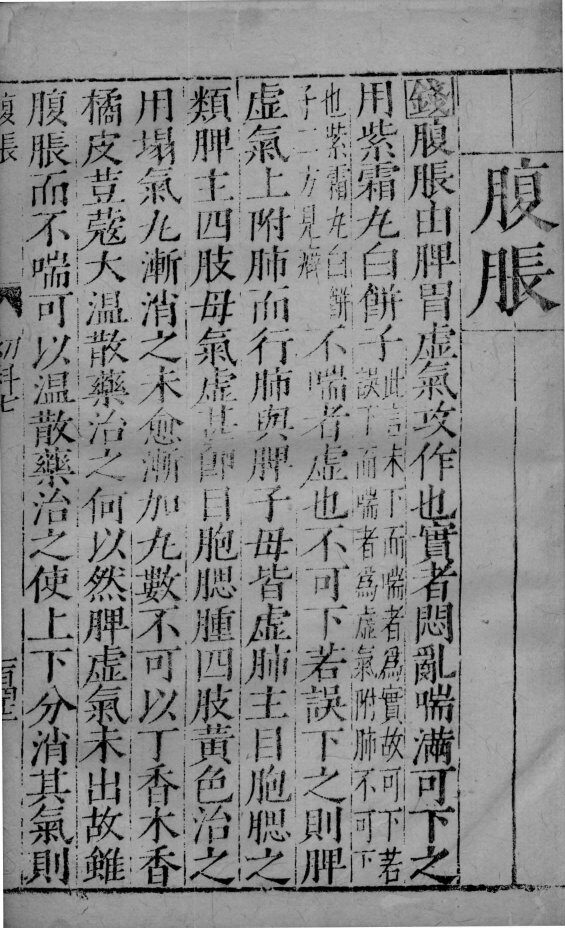 腹脹
錢腹脹由脾胃虛氣攻作也實者悶亂喘滿可下之
用紫霜丸白餅子此言未下而喘者爲實故可下若
誤下而喘者爲虛氣附肺不可下
也紫霜丸白餅
子二方見癖不喘者虛也不可下若誤下之則脾
虛氣上附肺而行肺與脾子母皆虛肺主目胞腮之
類脾主四肢母氣虛甚卽目胞腮腫四肢黃色治之
用塌氣丸漸消之未愈漸加丸數不可以丁香木香
橘皮荳蔻大温散藥治之何以然脾虛氣未出故雖
腹脹而不喘可以温散藥治之使上下分消其氣則
腹脹
幼科七